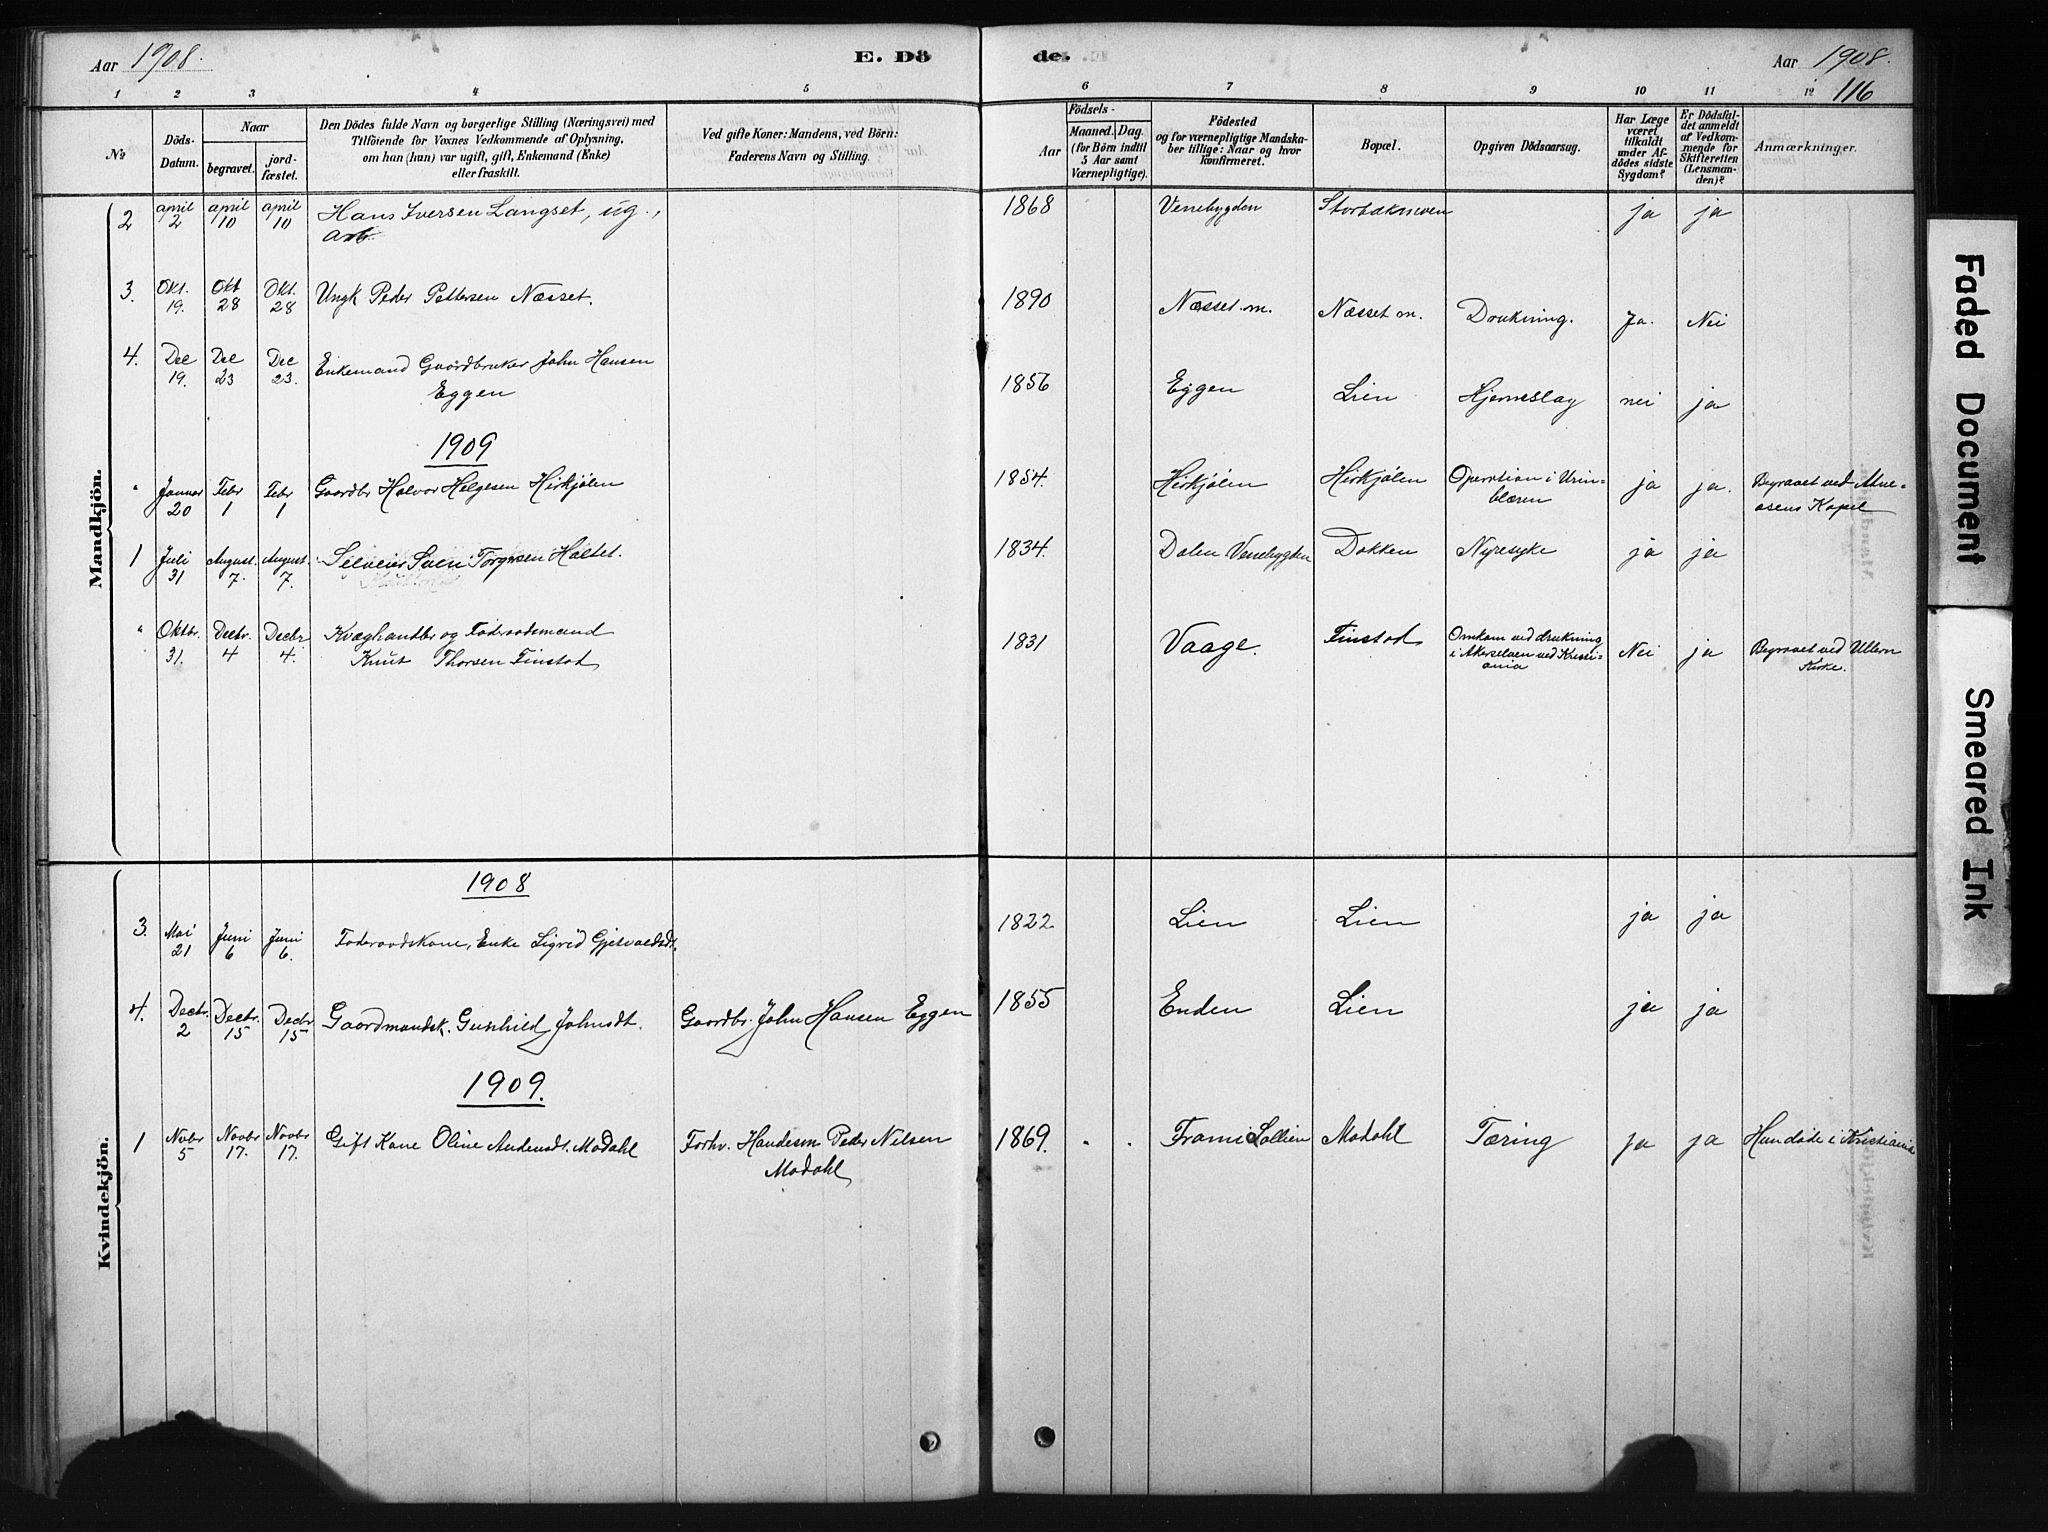 Aar 1908. E. Dö de. Aar 1908.
116
1 2 3 4 5 6 7 8 9 10 11 12
№
Döds-Datum.
Naar
begravet.
jord-fæstet.
Den Dödes fulde Navn og borgerlige Stilling (Næringsvei) med
Tilföiende for Voxnes Vedkommende af Oplysning,
om han (hun) var ugift, gift, Enkemand (Enke)
eller fraskilt.
Ved gifte Koner: Mandens, ved Börn:
Faderens Navn og Stilling.
Aar
Födsels-
Maaned. Dag.
(for Börn indtil
5 Aar samt
Værnepligtige).
Födested
og for værnepligtige Mandska-
ber tillige: Naar og hvor
konfirmeret.
Bopæl.
Opgiven Dödsaarsag.
Har Læge
været
tilkaldt
under Af-
dödes sidste
Sygdom?
Er Dödsfal-
det anmeldt
af Vedkom-
mende for
Skifteretten
(Lensman-
den)?
Anmærkninger.
Mandkjön.
2 april 2 april 10 april 10 Hans Iversen Langset, ug., arb. 1868 Venebygden ja ja
3. Okt. 19. Okt 28 Okt. 28 Ungk Peder Pettersen Næsset. 1890 Næsset m. Næsset m. Drukning. Ja. Nei
4. Dec 19. Dec 23 Dec 23. Enkemand Gaardbruker John Hansen Eggen 1856 Eggen Lien Hjerneslag nei ja
1909
" Januar 20 Febr 1 Febr 1 Gaardbr Halvor Helgesen Hirkjølen 1854. Hirkjølen Hirkjølen Operation i Urinblæren ja ja. Begravet ved Atneosens Kapel
1 Juli 31 August. 7. August. 7. Selveier Svein Torgersen Haltet. 1834. Dalen Venebygden Dokken Nyresyke ja ja
" Oktbr. 31. Decbr. 4 Decbr 4. Kvæghandler og Føderaadsmand Knut Thorsen Finstad 1831 Vaage. Finstad Omkom ved drukning i Akerselven ved Kristiania Nei ja Begravet ved Ullern Kirke.
Kvindekjön.
1908
3. Mai 21 Juni 6 Juni 6. Føderaadskone, Enke Sigrid Gjetvaldsdt. 1822 Lien Lien ja ja
4. Decbr. 2 Decbr. 15 Decbr 15 Gaardmandsk. Gunhild Johnsdt. Gaardbr. John Hansen Eggen 1855 Enden Lien ja ja
1909.
1 Novbr 5 Novbr 17. Novbr 17. Gift Kone Oline Andersdt. Modahl Forhv. Handesm Peder Nilsen Modahl 1869. " " Fram i Sollien Modahl Tæring ja ja Hun døde i Kristiania
Faded Document
Smeared Ink